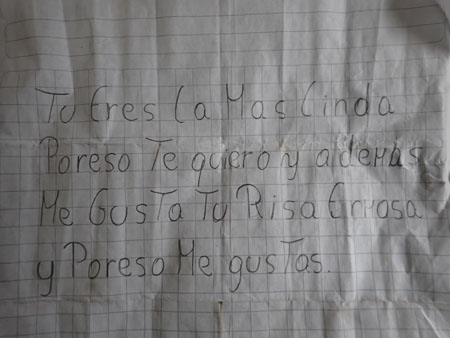 Tu Eres La Mas Linda
Poreso Te quiero y ademas
Me GusTa Tu Risa Ermosa
y Poreso Me gusTas.